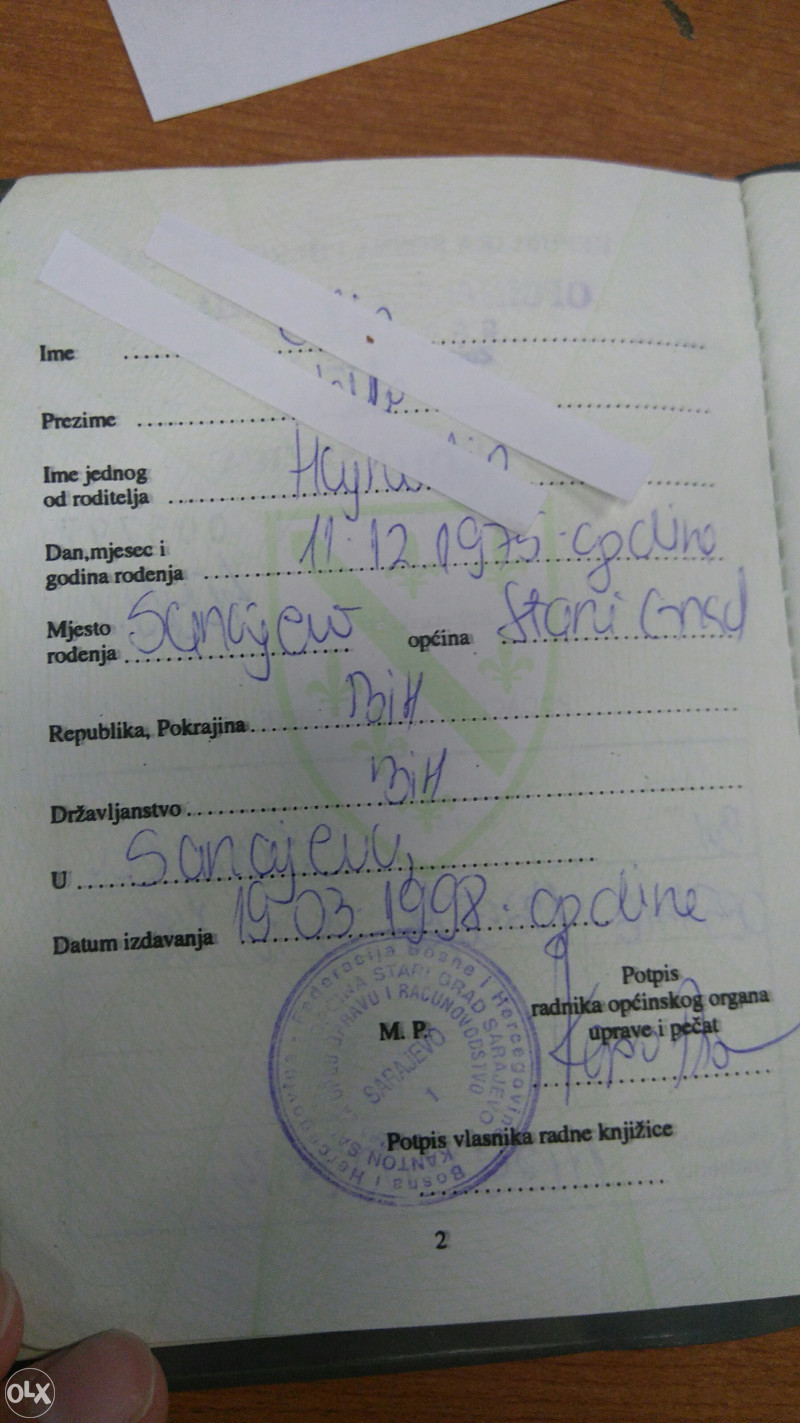 Ime
Prezime
Ime jednog
od roditelja
Dan,mjesec i
godina rođenja 11. 12 1975. godine
Mjesto
rođenja Sarajevo općina Stari Grad
Republika, Pokrajina BiH
Državljanstvo BiH
U Sarajevu,
Datum izdavanja 19.03.1998. godine
Potpis
radnika općinskog organa
uprave i pečat
M. P.
Federacija Bosne i Hercegovine
STARI GRAD SARAJEVO
UPRAVU I RAČUNOVODSTVO
SARAJEVO
1
KANTON
Bosna i Hercegovina
Potpis vlasnika radne knjižice
2
OLX